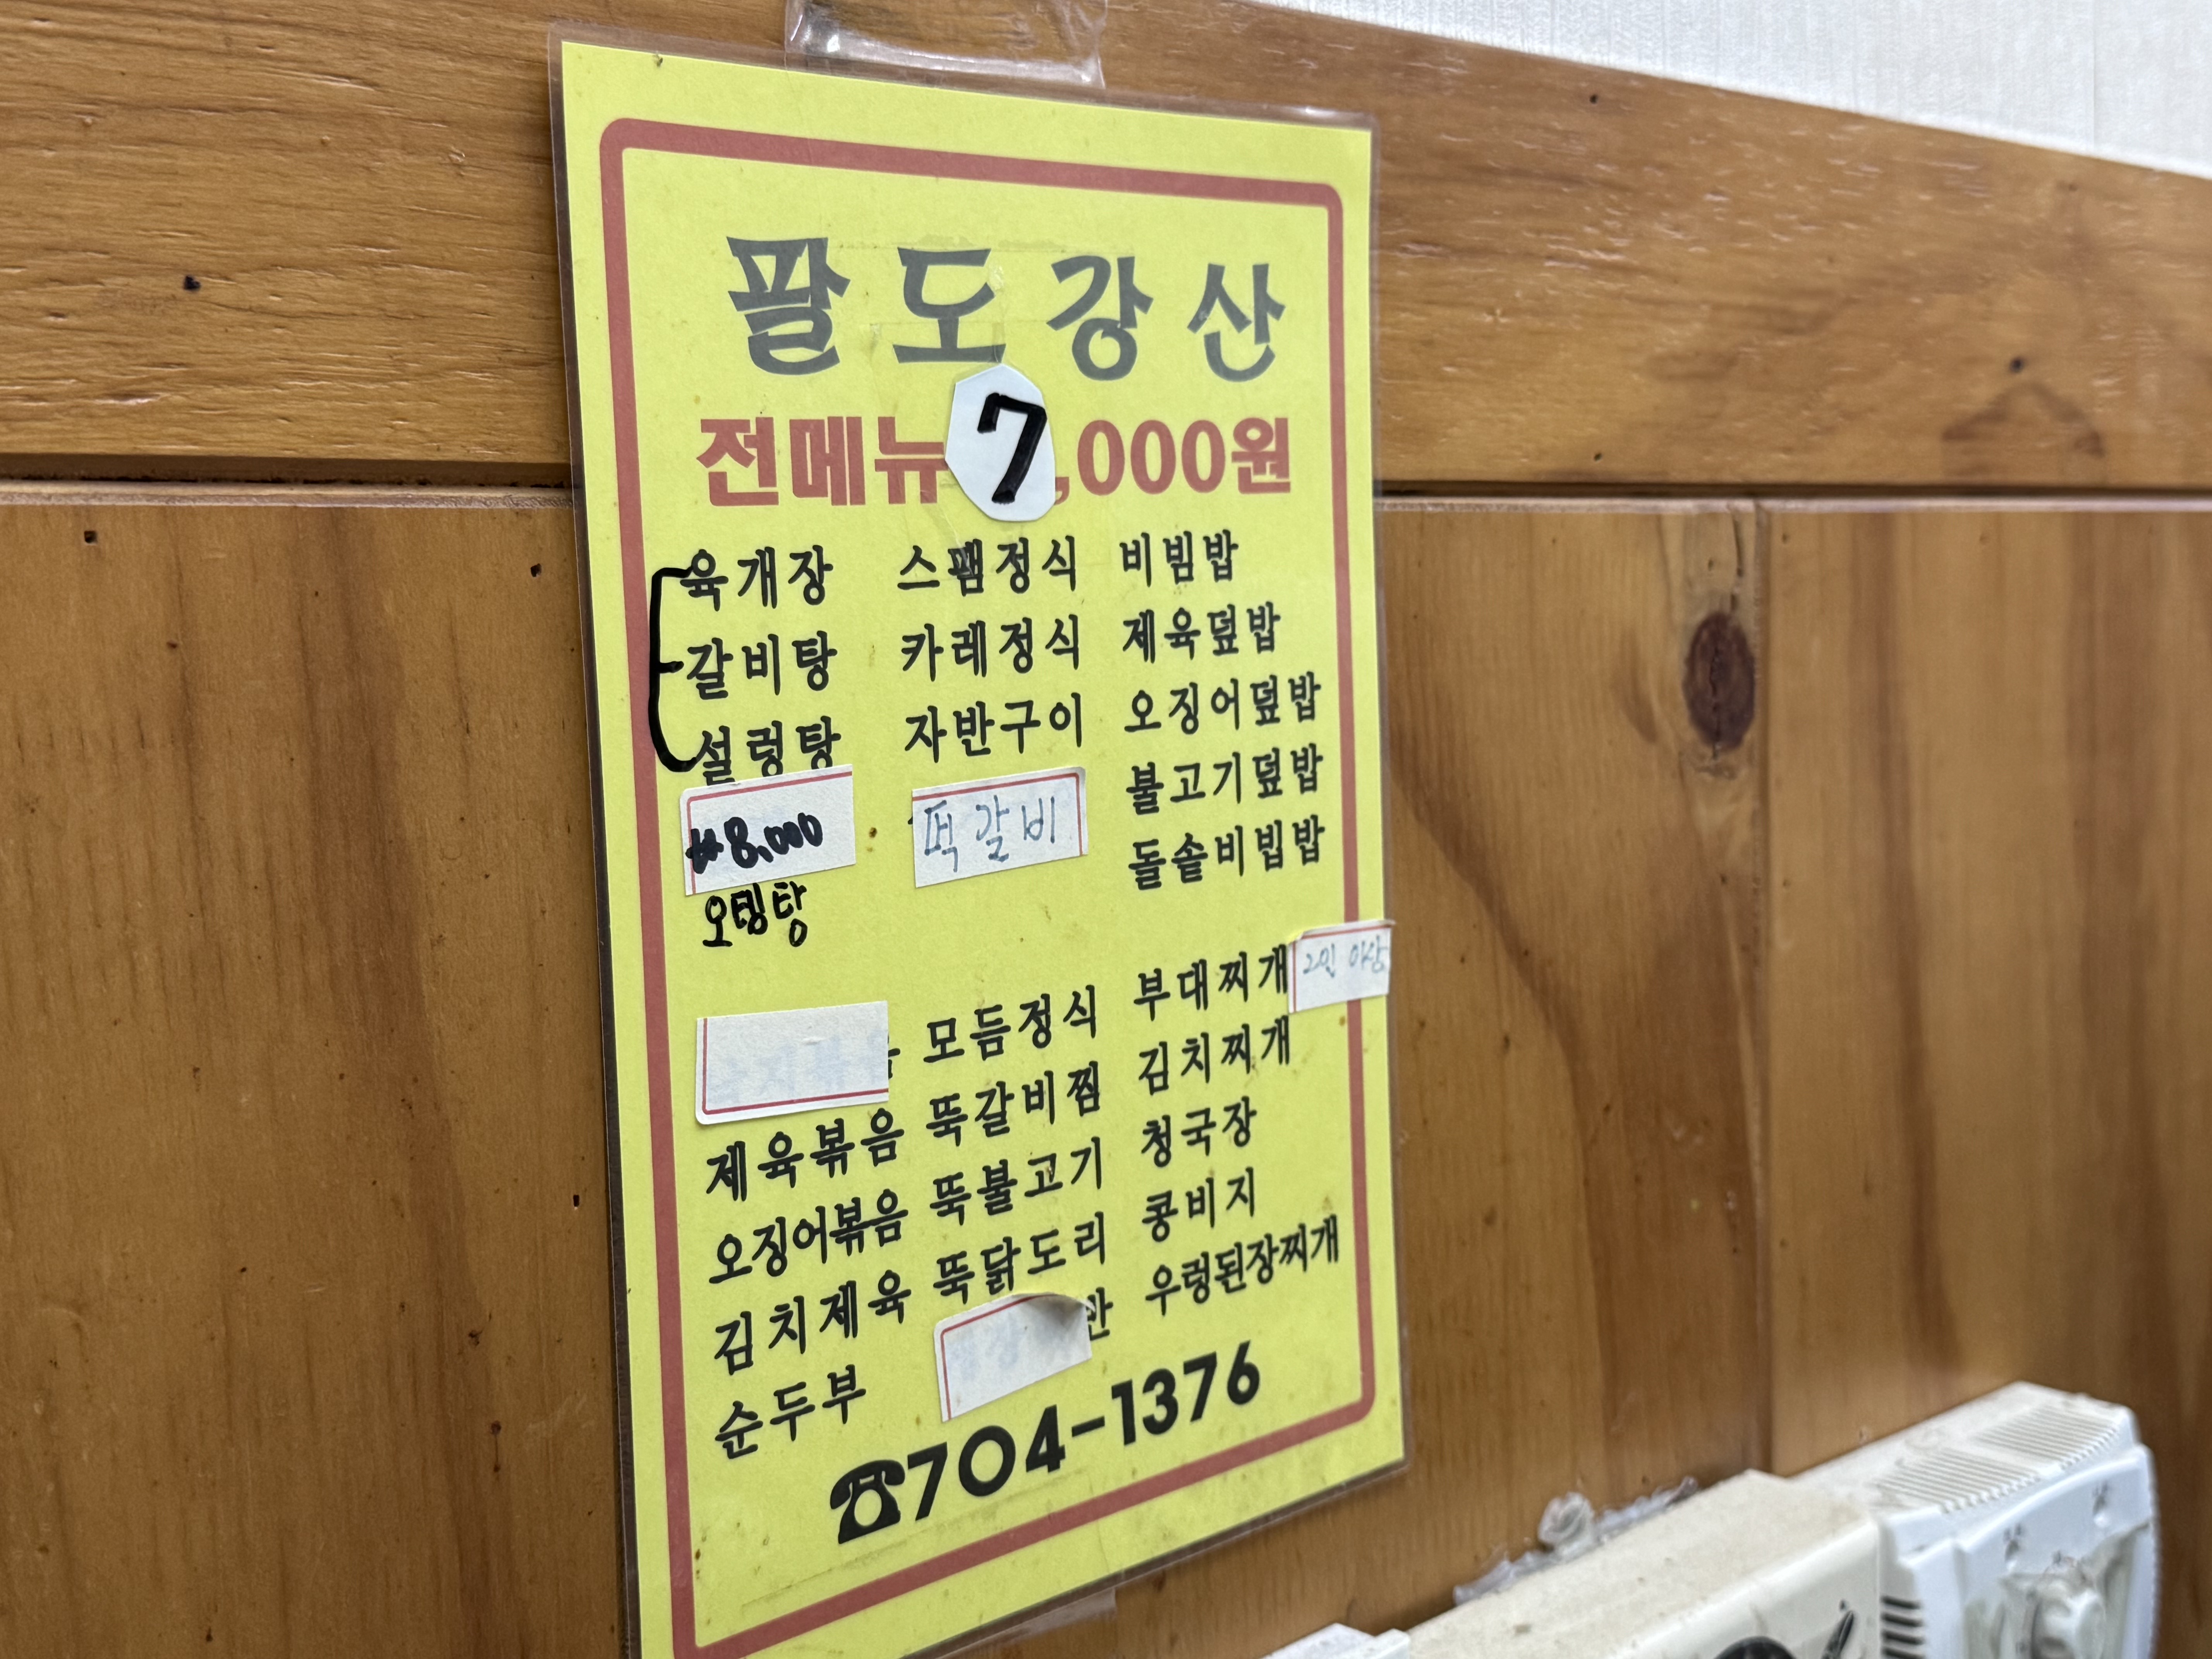 팔도강산
전메뉴 7,000원
육개장 스팸정식 비빔밥
갈비탕 카레정식 제육덮밥
설렁탕 자반구이 오징어덮밥
₩8,000 떡갈비 불고기덮밥
오뎅탕 돌솥비빔밥
모듬정식 부대찌개 2인 이상
제육볶음 뚝갈비찜 김치찌개
오징어볶음 뚝불고기 청국장
김치제육 뚝닭도리 콩비지
순두부 우렁된장찌개
☎704-1376